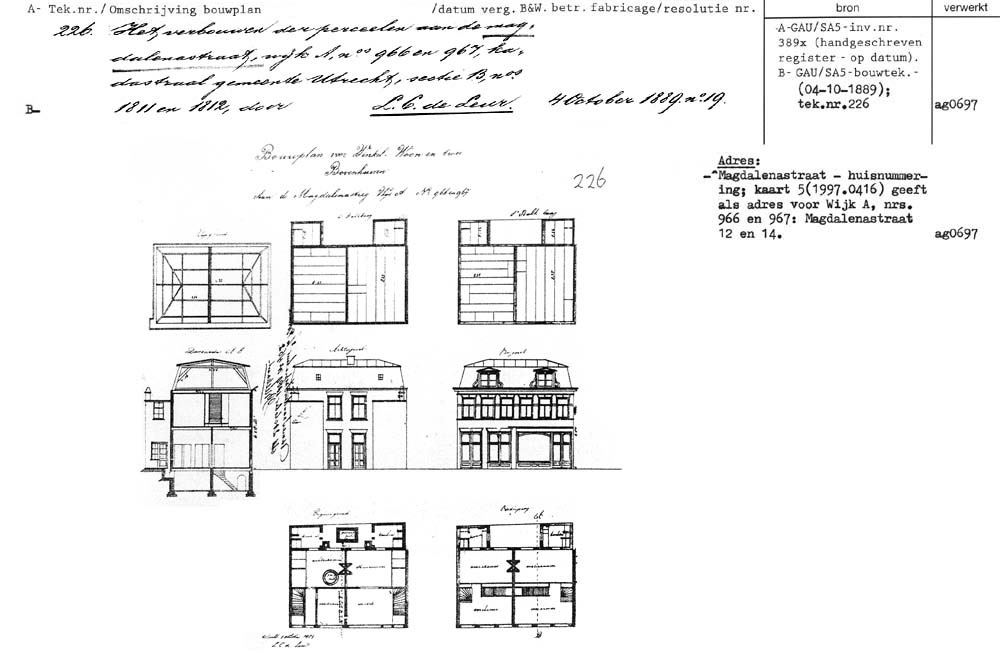 A- Tek.nr./Omschrijving bouwplan /datum verg. B&W. betr. fabricage/resolutie nr. bron verwerkt
226. Het verbouwen der perceelen aan de mag-
dalenastraat, wijk A, nos 966 en 967, ka-
dastraal gemeente Utrecht, sectie B, nos
B- 1811 en 1812, door L. C. de Leur. 4 October 1889. no. 19.
A-GAU/SA5-inv.nr.
389x (handgeschreven
register - op datum).
B- GAU/SA5-bouwtek.-
(04-10-1889);
tek.nr.226 ag0697
Adres:
-^Magdalenastraat - huisnummer-
ing; kaart 5(1997.0416) geeft
als adres voor Wijk A, nrs.
966 en 967: Magdalenastraat
12 en 14. ag0697
Bouwplan voor Winkel, Woon en twee
Bovenhuizen
Aan de Magdalenasteeg Wijk A No 966 en 967
226
Doorsnede A B
Achtergevel
Voorgevel
Begane grond
L. C. de Leur